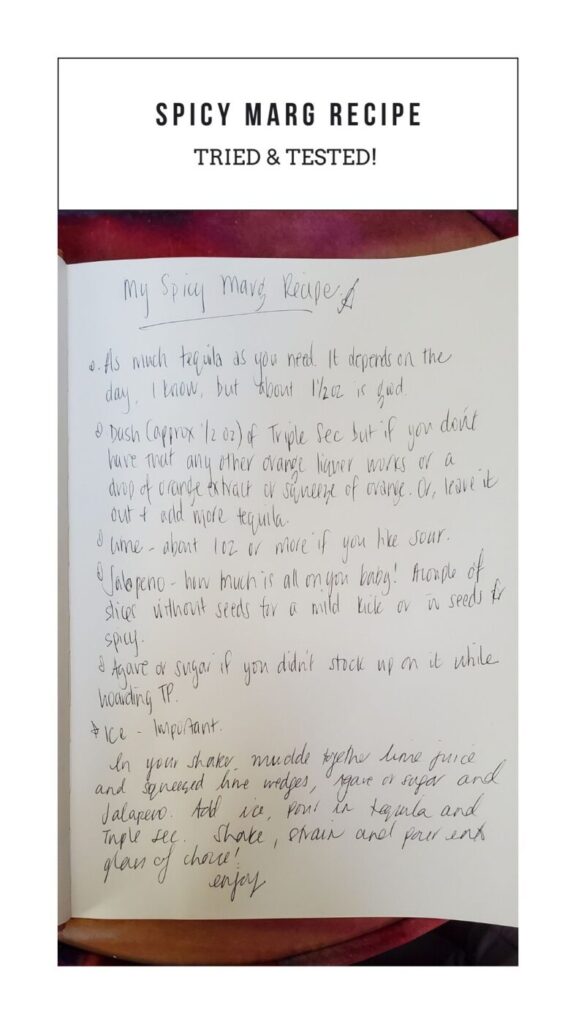 SPICY MARG RECIPE
TRIED & TESTED!
My Spicy Marg Recipe
As much tequila as you need. It depends on the
day, I know, but about 1 1/2 oz is good.
Dash (approx 1/2 oz) of Triple Sec but if you don't
have that any other orange liquer works or a
drop of orange extract or squeeze of orange. Or, leave it
out + add more tequila.
Lime - about 1 oz or more if you like sour.
Jalapeno - how much is all on you baby! A couple of
slices without seeds for a mild kick or w seeds for
spicy.
Agave or sugar if you didn't stock up on it while
hoarding TP.
Ice - Important.
In your shaker, muddle together lime juice
and squeezed lime wedges, Agave or sugar and
Jalapeno. Add ice, pour in tequila and
Triple Sec. Shake, strain and pour
glass of choice!
enjoy